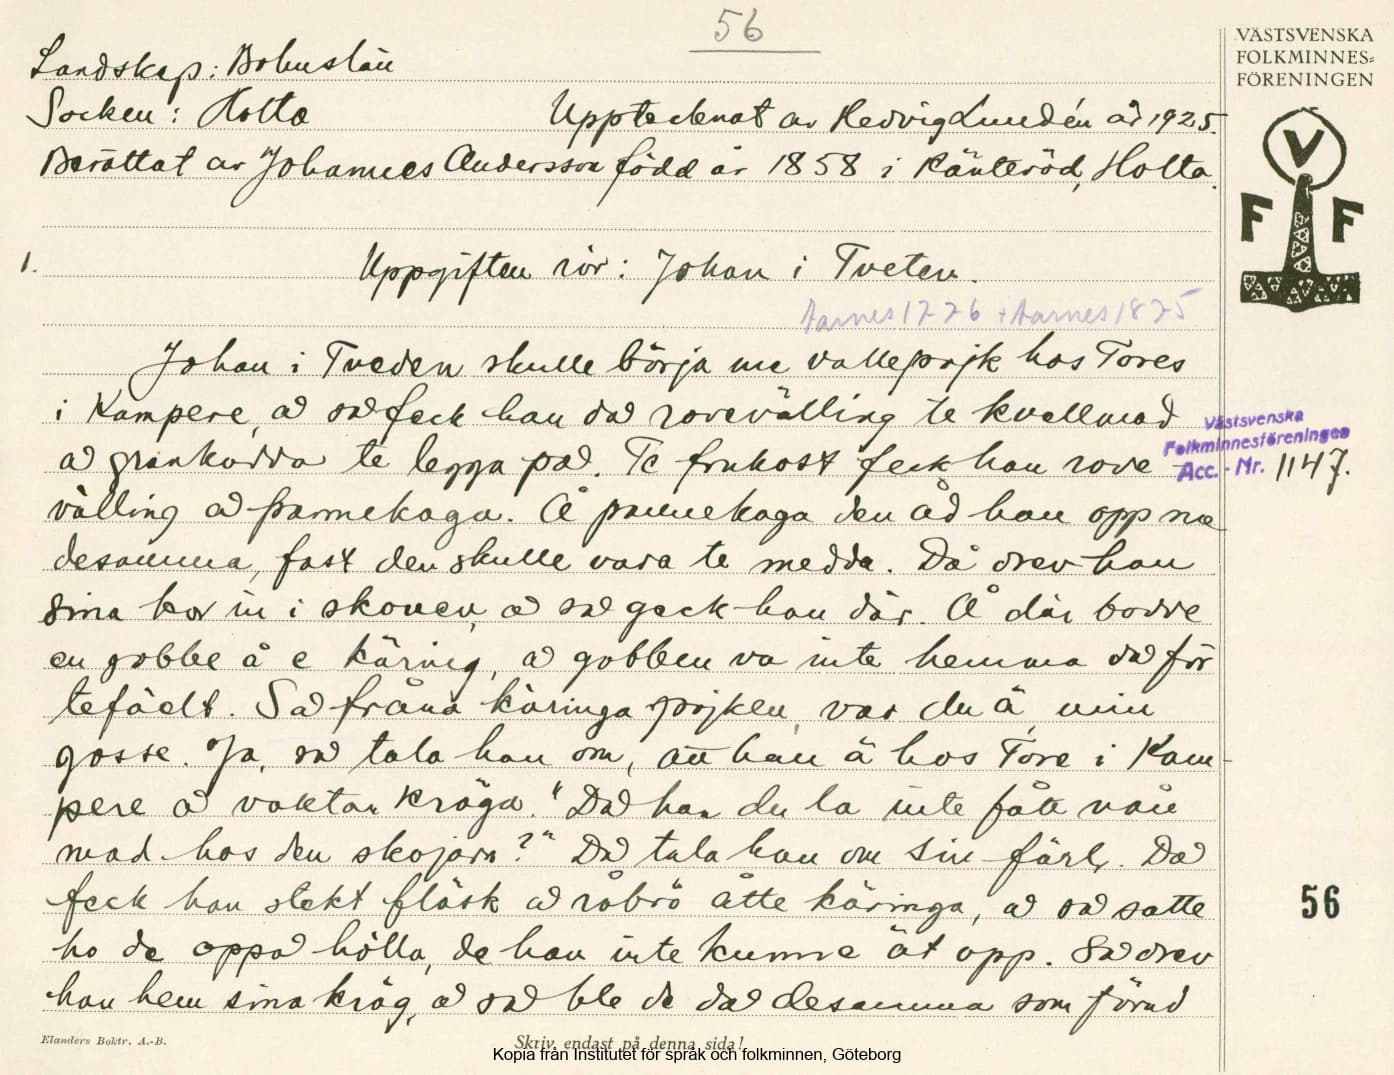 56
VÄSTSVENSKA
FOLKMINNES=
FÖRENINGEN
V
F F
Landskap: Bohuslän
Socken: Holta Upptecknat av Hedvig Lundén år 1925.
Berättat av Johannes Andersson född år 1858 i Känteröd, Holta.
1. Uppgiften rör: Johan i Tveten.
Aarnes 1726 + Aarnes 1875
Johan i Tveden skulle börja me vallepojk hos Tores
i Kampere, å så feck han då rovevälling te kvellmad
å grankådda te legga på. Te frukost feck han rove
välling å pannekaga. Å pannekaga den åd han opp mæ
desamma, fast den skulle vara te medda. Då drev han
sina kor in i skouen, å så geck han där. Å där bodde
en gobbe å e käring, å gobben va inte hemma då för
tefället. Så fråna käringa pojken, var du ä, min
gosse. Ja, så tala han om, att han ä hos Tore i Kam-
pere å vaktar kräga. "Då har du la inte fått nån
mad hos den skojarn?" Då tala han om sin färl. Då
feck han stekt fläsk å råbrö åtte käringa, å så satte
ho de oppå hölla, de han inte kunne ät opp. Så drev
han hem sina kräg, å så ble de då desamma som förud
Västsvenska
Folkminnesföreningen
Acc. - Nr. 1147.
56
Elanders Boktr. A.-B.
Skriv endast på denna sida!
Kopia från Institutet för språk och folkminnen, Göteborg